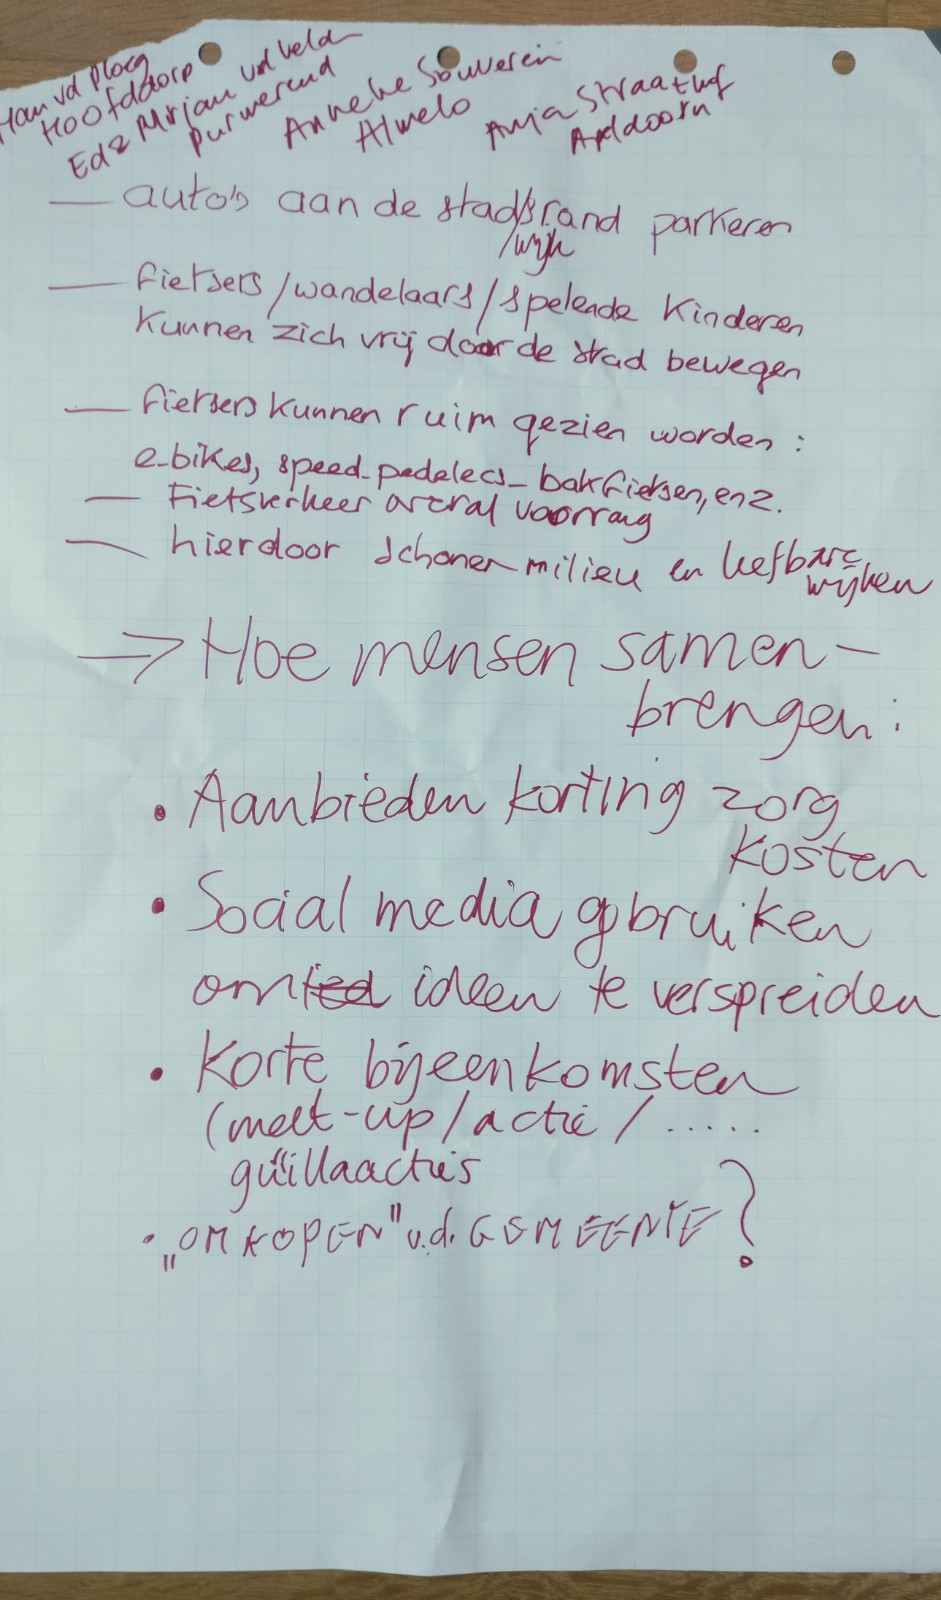 Han vd Ploeg
Hoofddorp
Ed & Mirjam vd Velde
Purmerend
Anneke Souverein
Almelo
Anja Straathof
Apeldoorn
— auto's aan de stadsrand parkeren
/wijk
— fietsers/wandelaars/spelende kinderen
kunnen zich vrij door de stad bewegen
— fietsers kunnen ruim gezien worden:
e-bikes, speed-pedelecs- bakfietsen, enz.
— Fietsverkeer overal voorrang
— hierdoor schoner milieu en leefbare
wijken
→ Hoe mensen samen-
brengen:
• Aanbieden korting zorg
kosten
• Social media gebruiken
om ideen te verspreiden
• Korte bijeenkomsten
(meet-up/actie/.....
guillaacties
• „OMKOPEN" v.d. GEMEENTE?